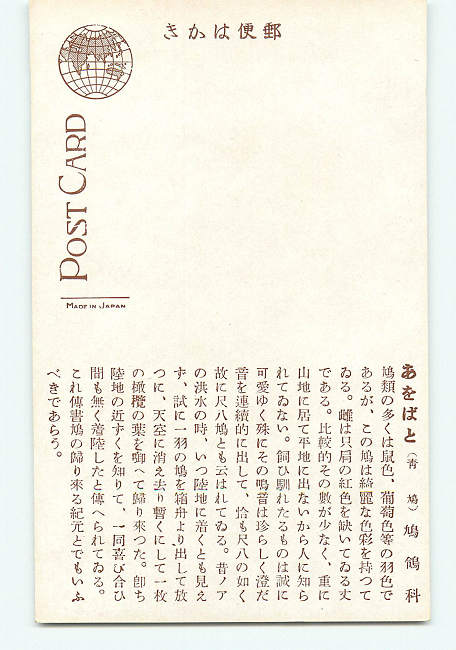 きかは便郵
POST CARD
MADE IN JAPAN
あをばと（靑鳩）鳩鴿科
鳩類の多くは鼠色、葡萄色等の羽色で
あるが、この鳩は綺麗な色彩を持つて
ゐる。雌は只肩の紅色を缺いてゐる丈
である。比較的その數が少なく、重に
山地に居て平地に出ないから人に知ら
れてゐない。飼ひ馴れたるものは誠に
可愛ゆく殊にその鳴音は珍らしく澄だ
音を連續的に出して、恰も尺八の如く
故に尺八鳩とも云はれてゐる。昔ノア
の洪水の時、いつ陸地に着くとも見え
ず、試に一羽の鳩を箱舟より出して放
つに、天空に消え去り暫くにして一枚
の橄欖の葉を啣へて歸り來つた。卽ち
陸地の近ずくを知りて、一同喜び合ひ
間も無く着陸したと傳へられてゐる。
これ傳書鳩の歸り來る紀元とでもいふ
べきであらう。